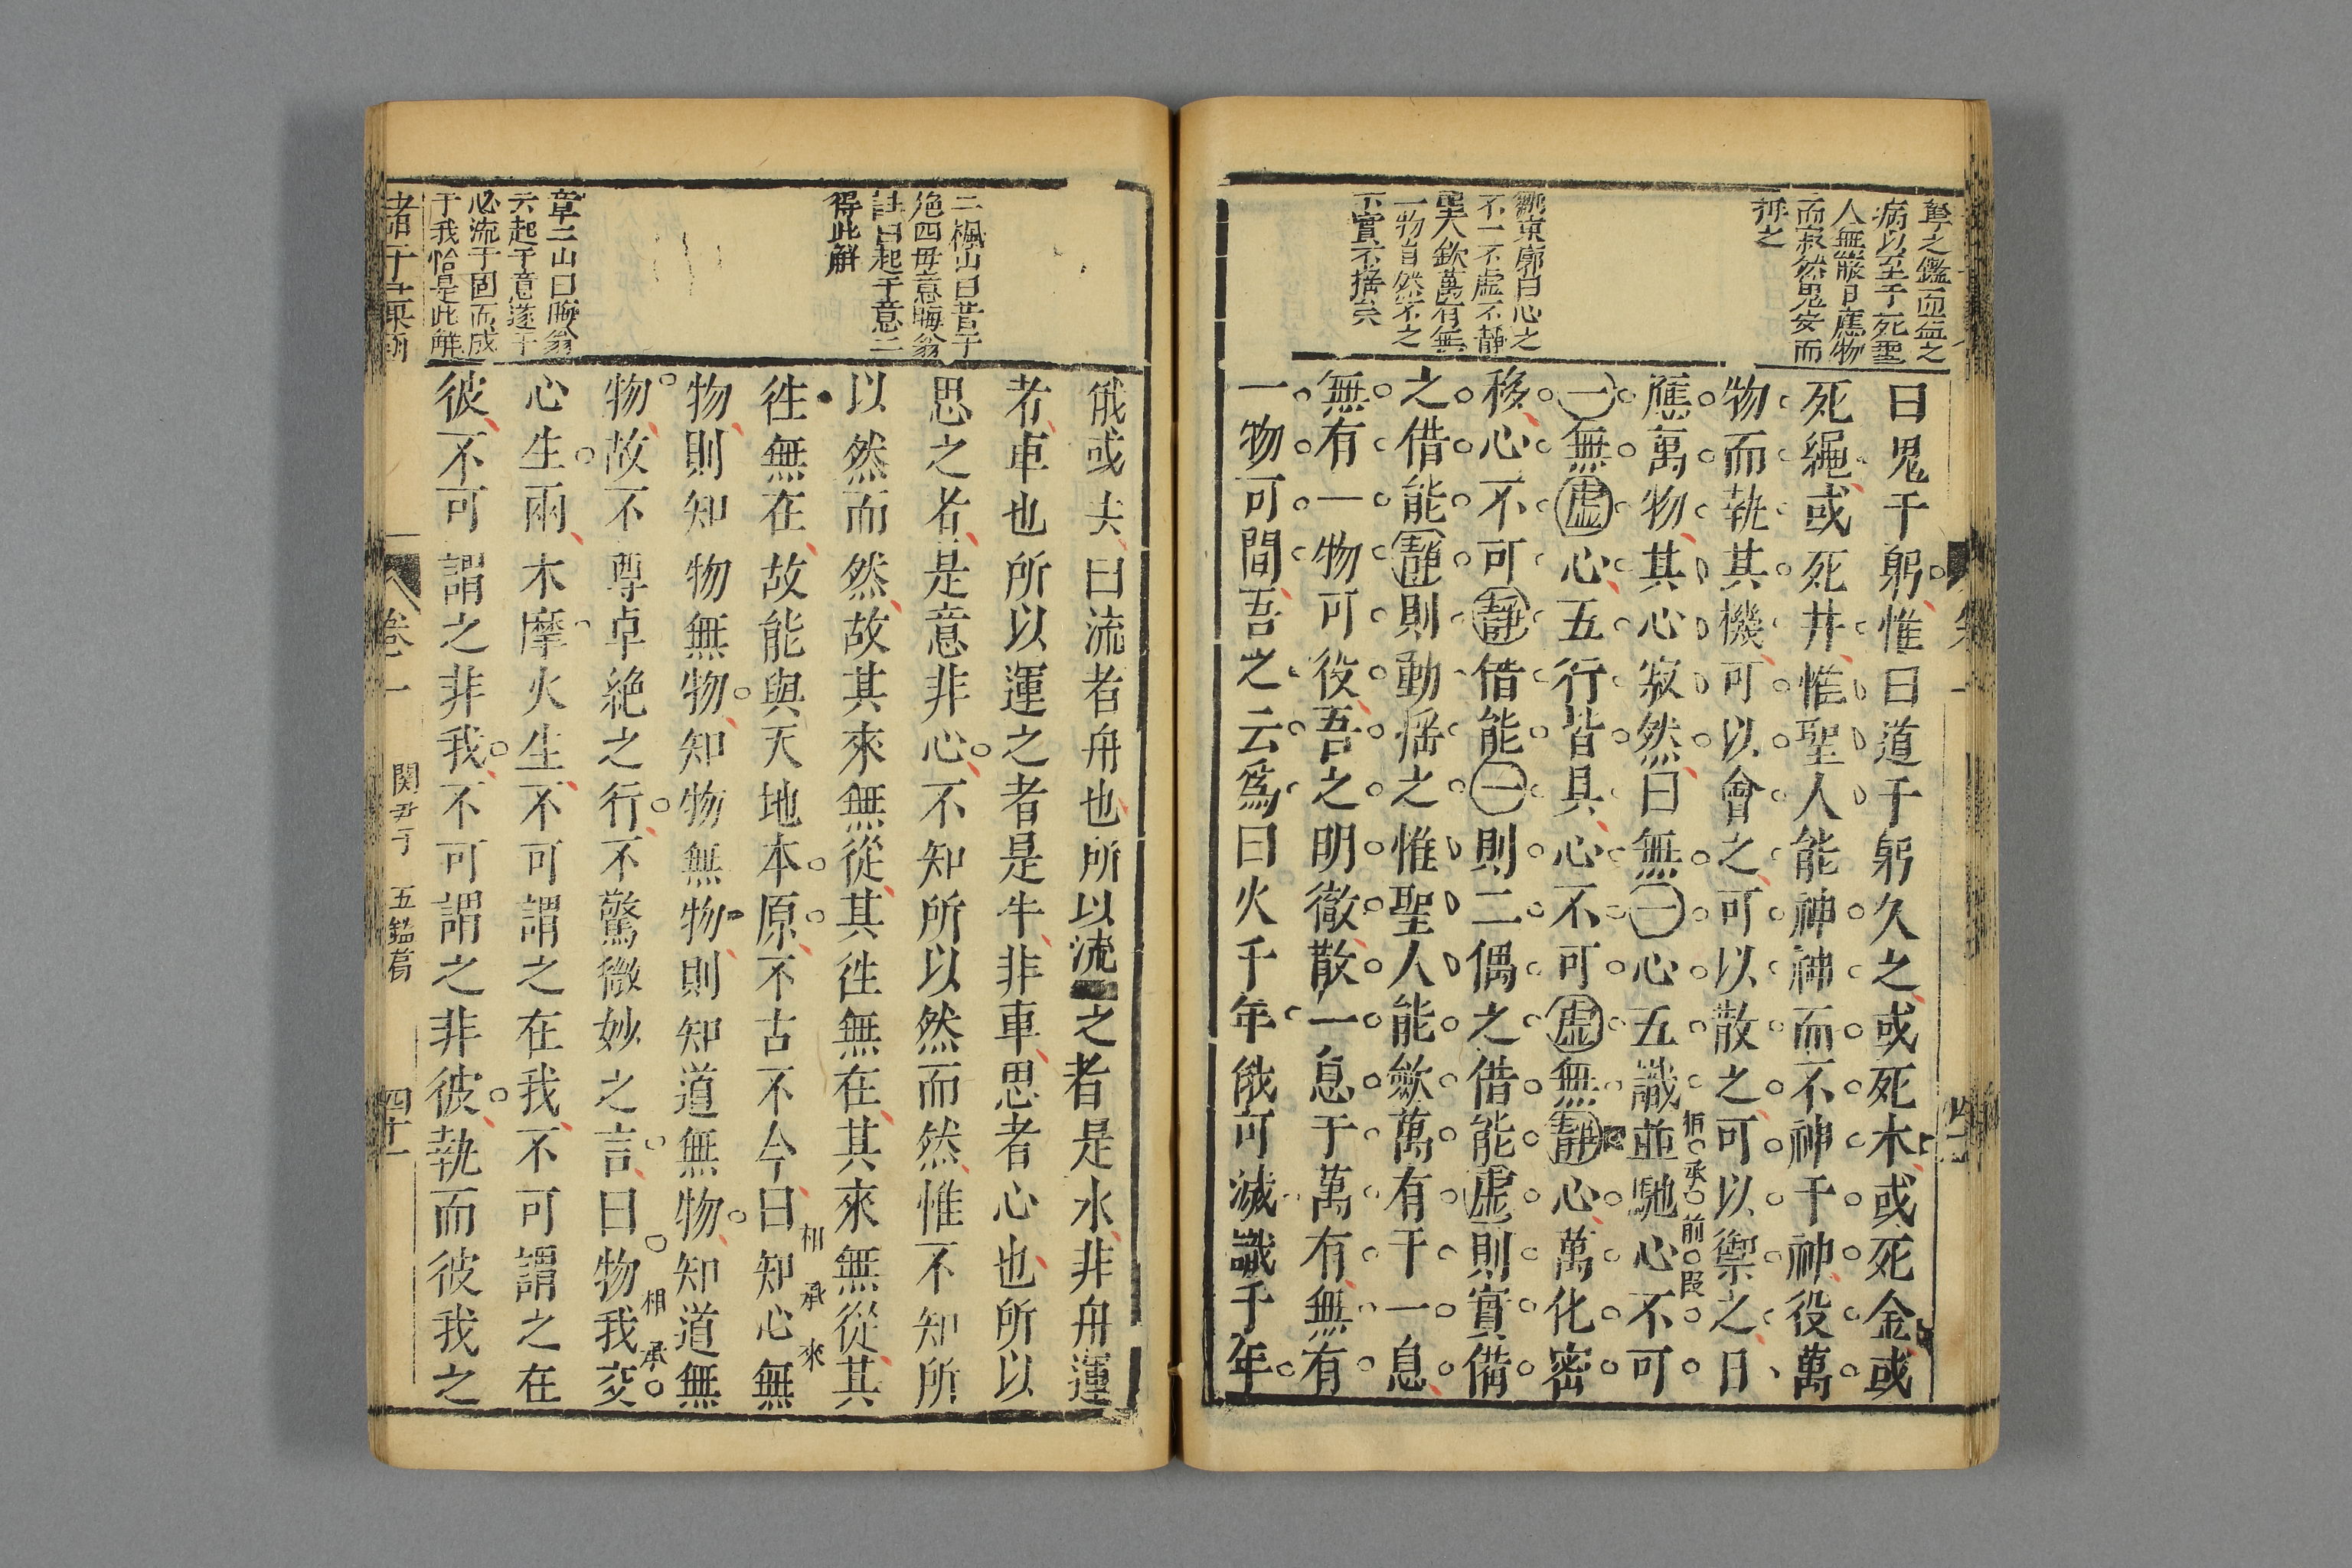 曰鬼于躬惟曰道于躬久之或死木或死金或
死繩或死井惟聖人能神神而不神于神役萬
物而執其機可以會之可以散之可以禦之日
應萬物其心寂然曰無一心五識並馳心不可
指承前段
一無虛心五行皆具心不可虛無靜心萬化密
移心不可靜借能一則二偶之借能虛則實備
之借能靜則動搖之惟聖人能斂萬有于一息
無有一物可役吾之明徹散一息于萬有無有
一物可間吾之云爲曰火千年俄可滅識千年
病以至于死聖
人無嚴日應物
而寂然鬼安而
鄒東廓曰心之
不一不虛不靜
聖人斂萬有無
一物自然不之
俄或去曰流者舟也所以流之者是水非舟運
者車也所以運之者是牛非車思者心也所以
思之者是意非心不知所以然而然惟不知所
以然而然故其來無從其徃無在其來無從其
徃無在故能與天地本原不古不今曰知心無
相承來
物則知物無物知物無物則知道無物知道無
物故不尊卓絶之行不驚微妙之言曰物我交
相承
心生兩木摩火生不可謂之在我不可謂之在
彼不可謂之非我不可謂之非彼執而彼我之
二楓山曰昔子
絶四毋意晦翁
註曰起于意二
得此解
章二山曰晦翁
云起于意遂于
必流于固而成
于我恰是此解
卷一
関尹子
五鑑篇
四十一